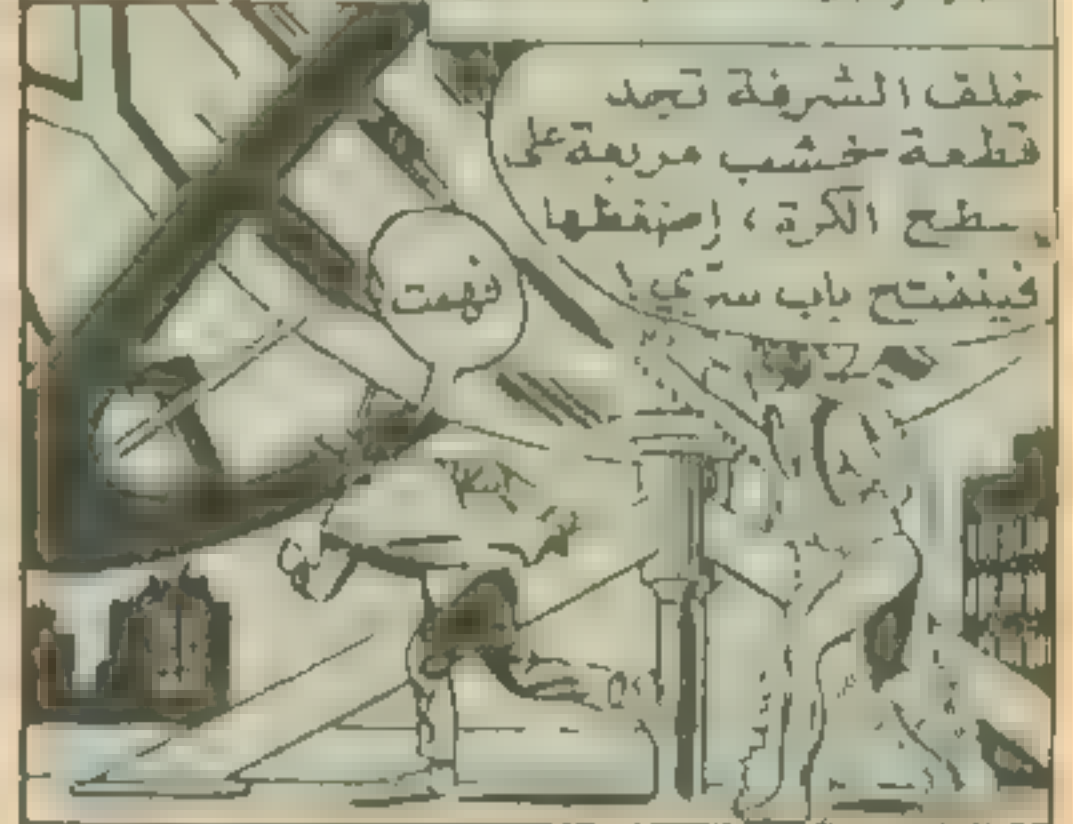 خلف الشرفة تجد
قطعة خشب مربعة على
سطح الكرة ، إضغطها
فينفتح باب سري !
فهمت